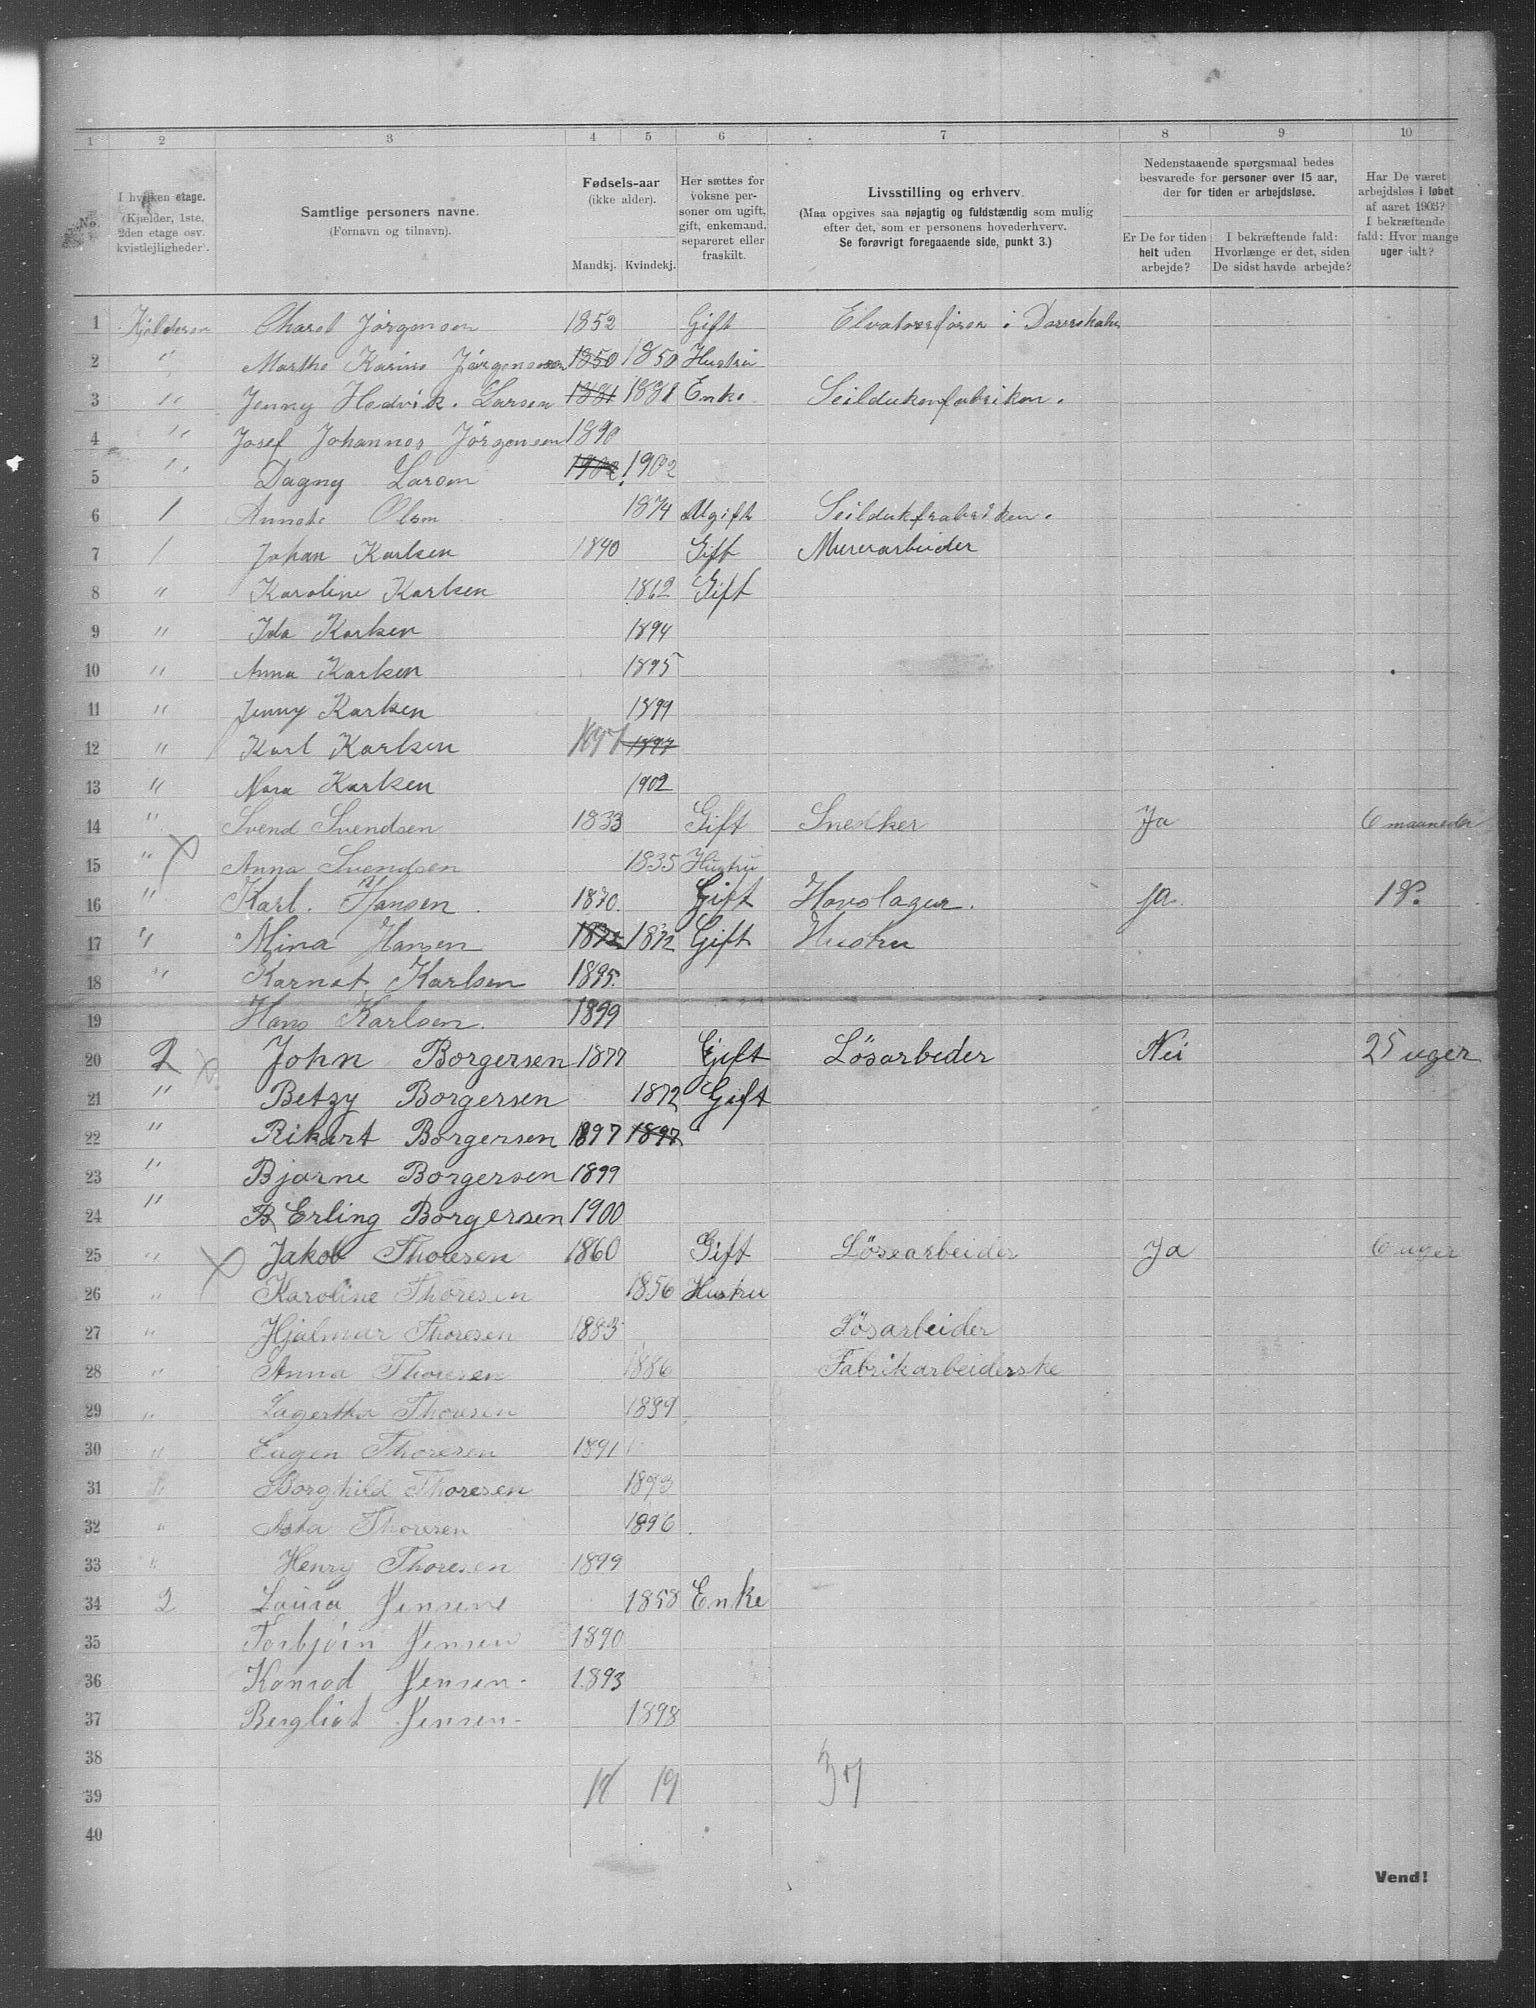 1 2 3 4 5 6 7 8 9 10
No. I hvilken etage. (Kjælder, 1ste, 2den etage osv. kvistleiligheder). Samtlige personers navne. (Fornavn og tilnavn). Fødsels-aar (ikke alder). Mandkj. Kvindekj. Her sættes for voksne personer om ugift, gift, enkemand, separeret eller fraskilt. Livsstilling og erhverv. (Maa opgives saa nøjagtig og fuldstændig som mulig efter det, som er personens hovederhverv. Se forøvrigt foregaaende side, punkt 3.) Nedenstaaende spørgsmaal bedes besvarede for personer over 15 aar, der for tiden er arbejdsløse. Er De for tiden helt uden arbejde? I bekræftende fald: Hvorlænge er det, siden De sidst havde arbejde? Har De været arbejdsløs i løbet af aaret 1903? I bekræftende fald: Hvor mange uger ialt?
1 Kjelderen Charel Jørgensen 1852 Gift i
2 " Marthe Karine Jørgensen 1850 1850 Hustru
3 " Jenny Hedvik. Larsen 1881 1881 Enke Seildukenfabriken.
4 " Josef Johannes Jørgensen 1890
5 " Dagny Larsen 1902 1902
6 1 Annete Olsen 1874 Ugift Seildukfrabriken.
7 / Johan Karlsen 1840 Gift Murerarbeider
8 " Karoline Karlsen 1862 Gift
9 " Ida Karlsen 1894
10 " Anna Karlsen 1895
11 " Jenny Karlsen 1899
12 " Karl Karlsen 1897 1897
13 " Nora Karlsen 1902
14 " Svend Svendsen 1833 Gift Snedker Ja 6 maaneder
15 " Anna Svendsen 1835 Hustru
16 " Karl. Hansen 1870. Gift Hovslager. ja. 18.
17 " Mina Hansen 1872 1872 Gift Hustru
18 " Karnat Karlsen 1895.
19 Hans Karlsen. 1899
20 2 John Borgersen 1877 Gift Løsarbeder Nei 25 uger
21 " Betzy Borgersen 1872 Gift
22 " Rikart Borgersen 1897 1897
23 " Bjarne Borgersen 1899
24 " B Erling Borgersen 1900
25 " Jakob Thoresen 1860 Gift Løsearbeider Ja 6 uger
26 " Karoline Thoresen 1856 Hustru
27 " Hjalmar Thoresen 1883 Løsarbeider
28 " Anna Thoresen 1886 Fabrikarbeiderske
29 " Lagertha Thoresen 1889
30 " Eugen Thoresen 1891
31 " Borghild Thoresen 1893
32 " Asta Thoresen 1896
33 " Henry Thoresen 1899
34 2 Laura Jensene 1858 Enke
35 Torbjørn Jensen 1890
36 Konrad Jensen. 1893
37 Bergliot Jensen. 1898
38
39 18 19 37
40
Vend!